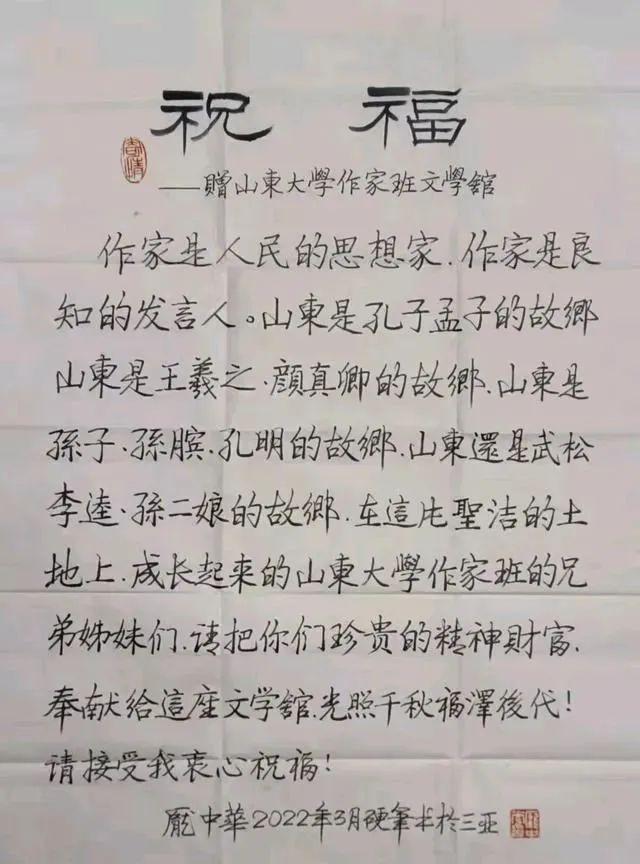 祝福
——贈山東大學作家班文學舘
作家是人民的思想家.作家是良
知的发言人。山東是孔子孟子的故鄉
山東是王羲之.顔真卿的故鄉.山東是
孫子.孫臏.孔明的故鄉.山東還是武松
李逵.孫二娘的故鄉.在這片聖洁的土
地上.成长起来的山東大學作家班的兄
弟姊妹们.请把你们珍贵的精神財富.
奉献给這座文学舘.光照千秋福澤後代!
请接受我衷心祝福!
龐中華2022年3月硬筆书於三亚